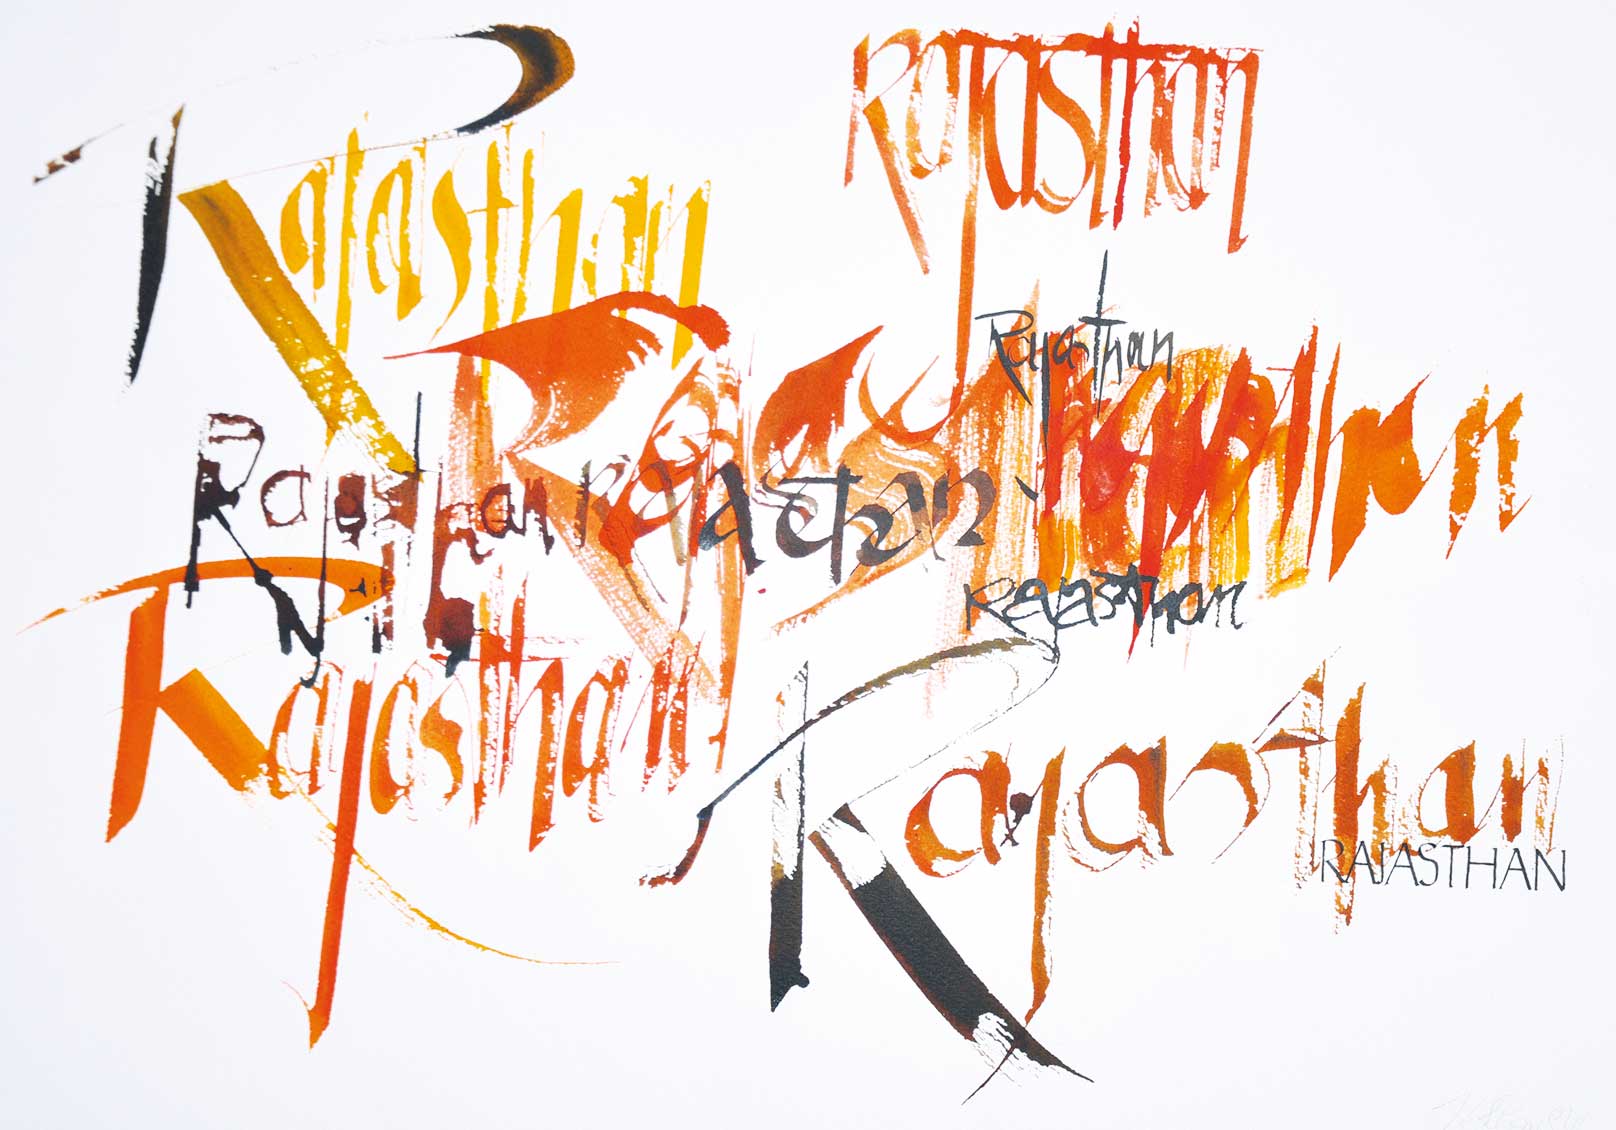 Rajasthan
Rajasthan
Rajasthan
Rajasthan
Rajasthan
Rajasthan
Rajasthan
Rajasthan
Rajasthan
Rajasthan
RAJASTHAN